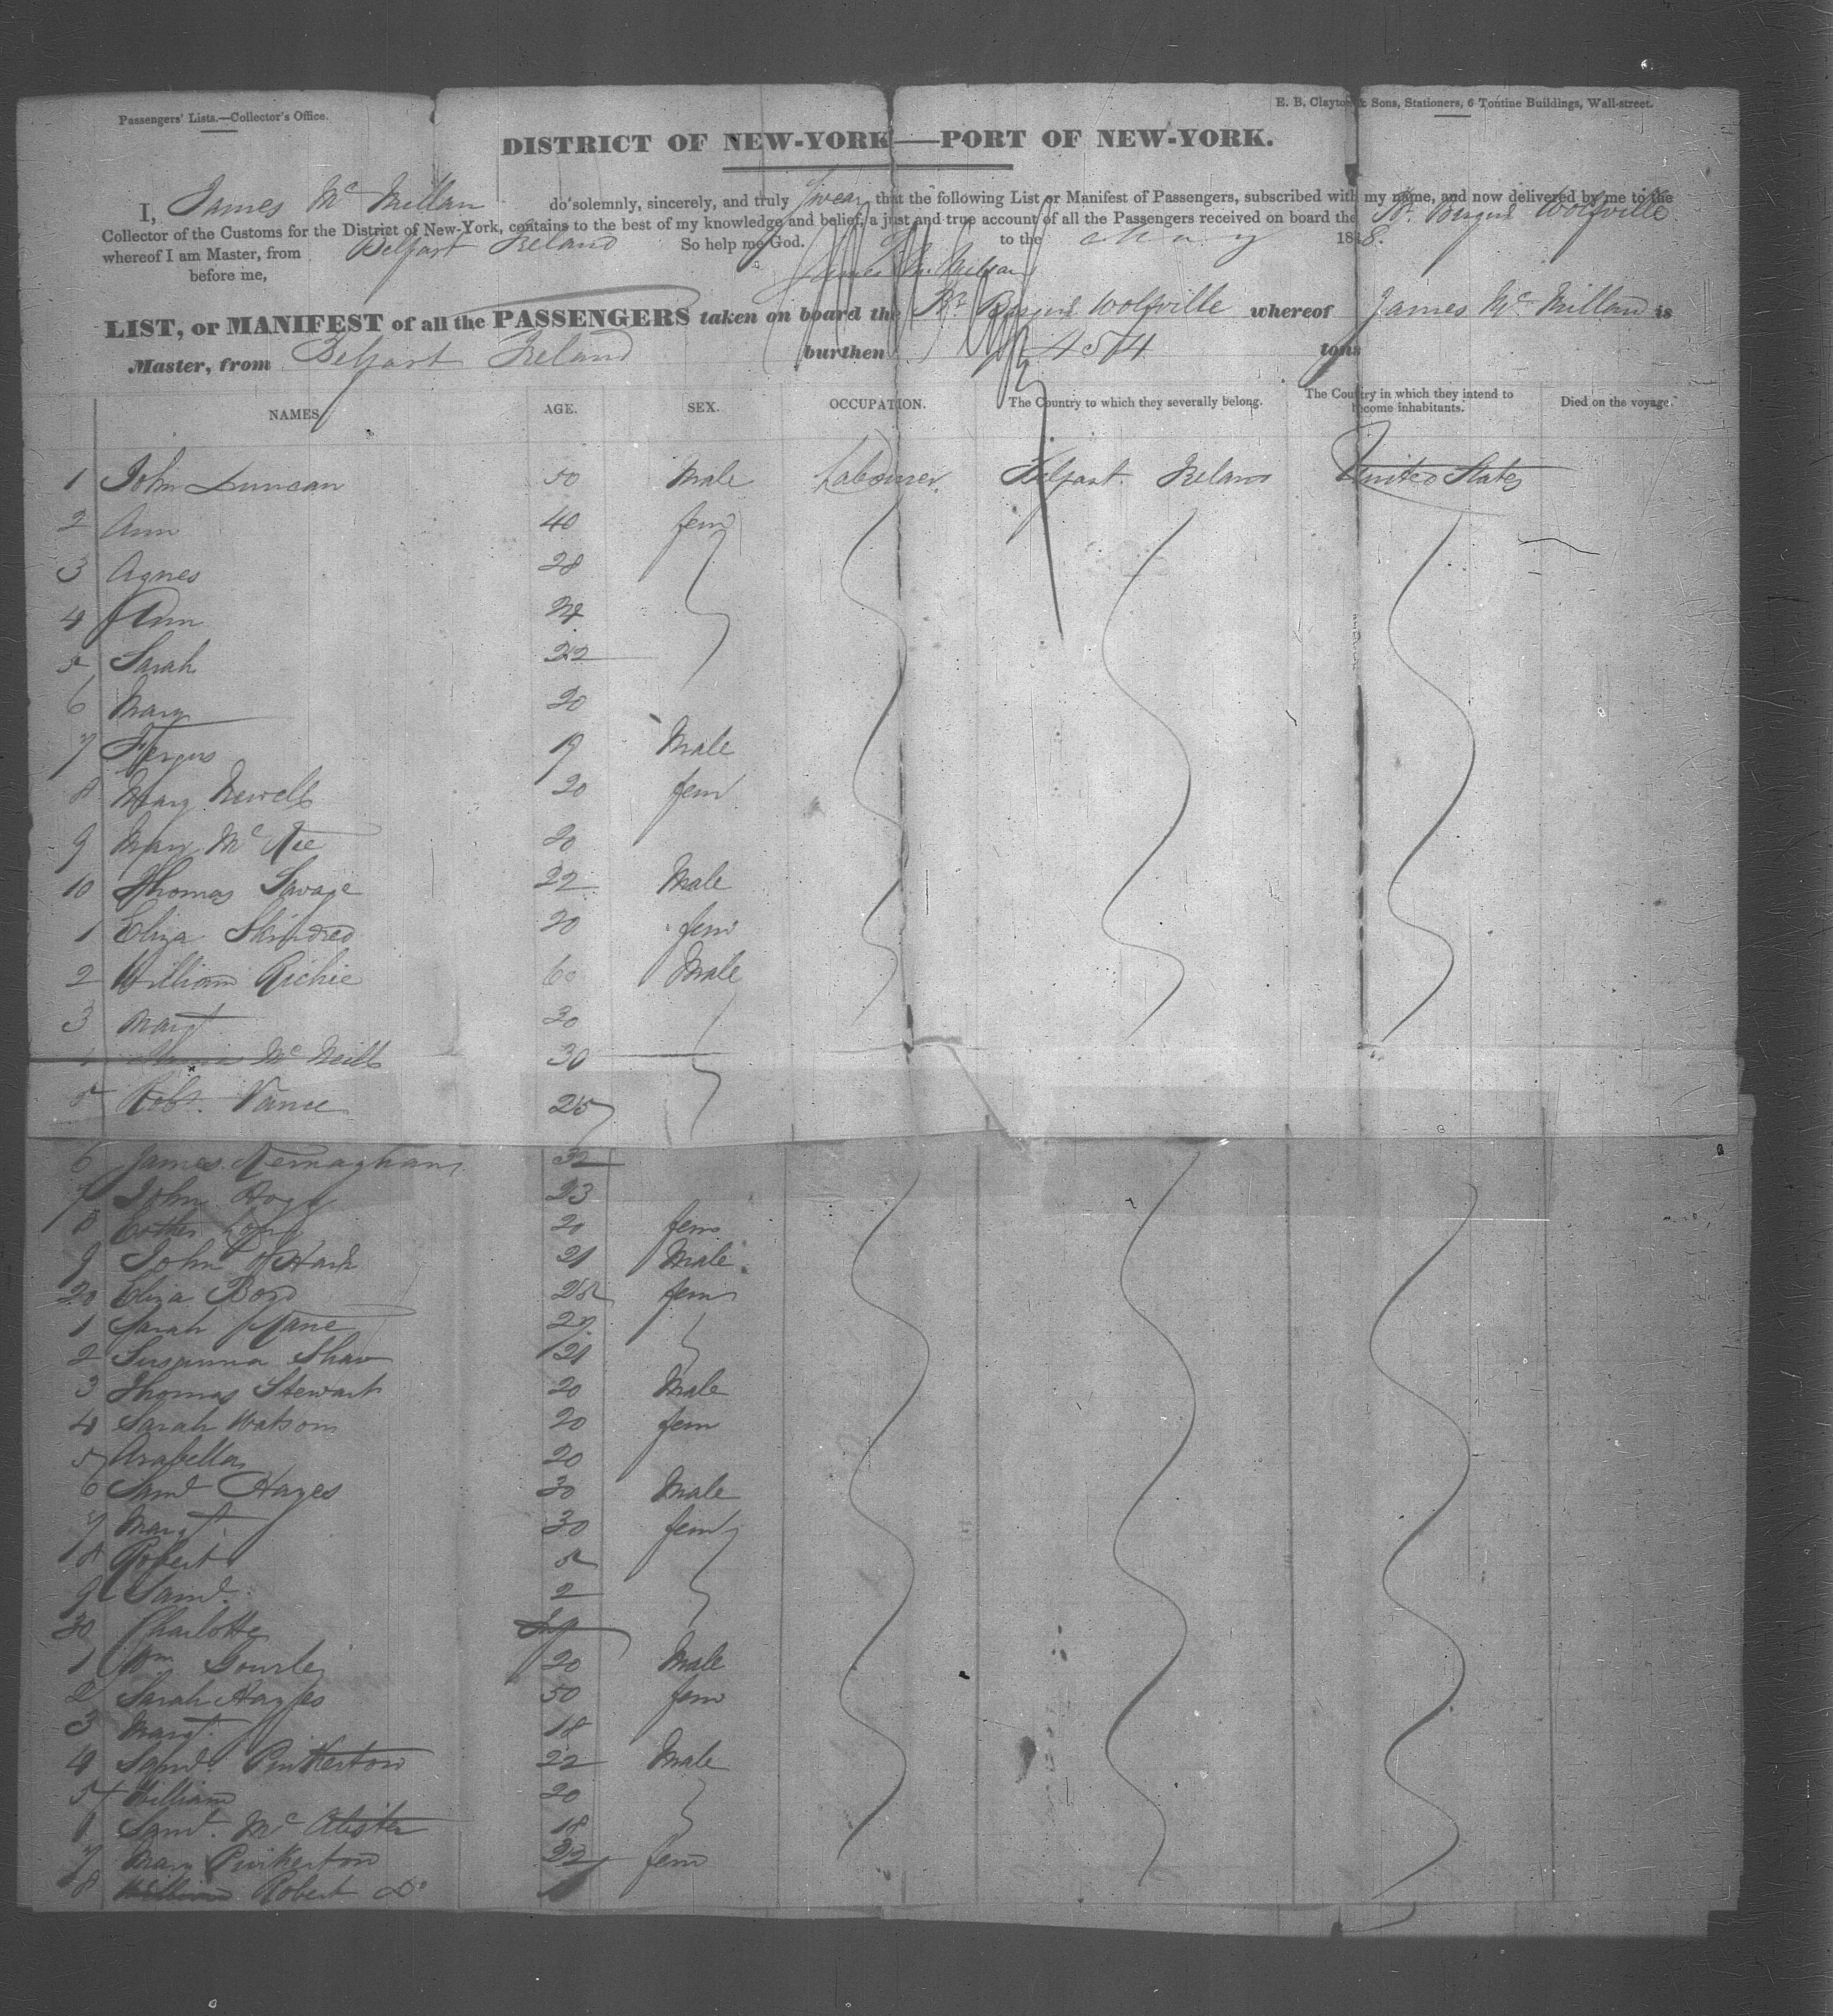 Passengers' Lists.—Collector's Office.
E. B. Clayton & Sons, Stationers, 6 Tontine Buildings, Wall-street.
DISTRICT OF NEW-YORK—PORT OF NEW-YORK.
I, James Mc Millan do solemnly, sincerely, and truly swear that the following List or Manifest of Passengers, subscribed with my name, and now delivered by me to the
Collector of the Customs for the District of New-York, contains to the best of my knowledge and belief, a just and true account of all the Passengers received on board the Br. Wolfville
whereof I am Master, from Belfast Ireland So help me God. to the 1848.
before me, James Mc Millan
LIST, or MANIFEST of all the PASSENGERS taken on board the Br. Wolfville whereof James Mc Millan is
Master, from Belfast Ireland burthen tons
NAMES. AGE. SEX. OCCUPATION. The Country to which they severally belong. The Country in which they intend to become inhabitants. Died on the voyage.
1 John Duncan 50 Male Labourer Belfast Ireland United States
2 Ann 40 fem
3 Agnes 28
4 Ann 24
5 Sarah 22
6 Mary 20
7 Fergus 19 Male
8 Mary Newells 20 fem
9 Mary Mc Kee 20
10 Thomas Savage 22 Male
1 Eliza 20 fem
2 William Richie 60 Male
3 Margt 20
4 Mc Neill 30
5 Robt. Vance 25
6 James 32
7 John 23
8 Esther 20 fem
9 John 21 Male
20 Eliza Boyd 25 fem
1 Sarah Kane 22
2 Susanna Shaw 21
3 Thomas Stewart 20 Male
4 Sarah Watson 20 fem
5 Arabella 20
6 Saml Hayes 30 Male
7 Margt 30 fem
8 Robert 5
9 Saml. 2
30 Charlotte Inf
1 Wm Gourley 20 Male
2 Sarah Hayes 50 fem
3 Margt. 18
4 Saml Pinkerton 22 Male
5 William 20
6 Saml. Mc Alister 18
7 Mary Pinkerton 22 fem
8 Robert Do